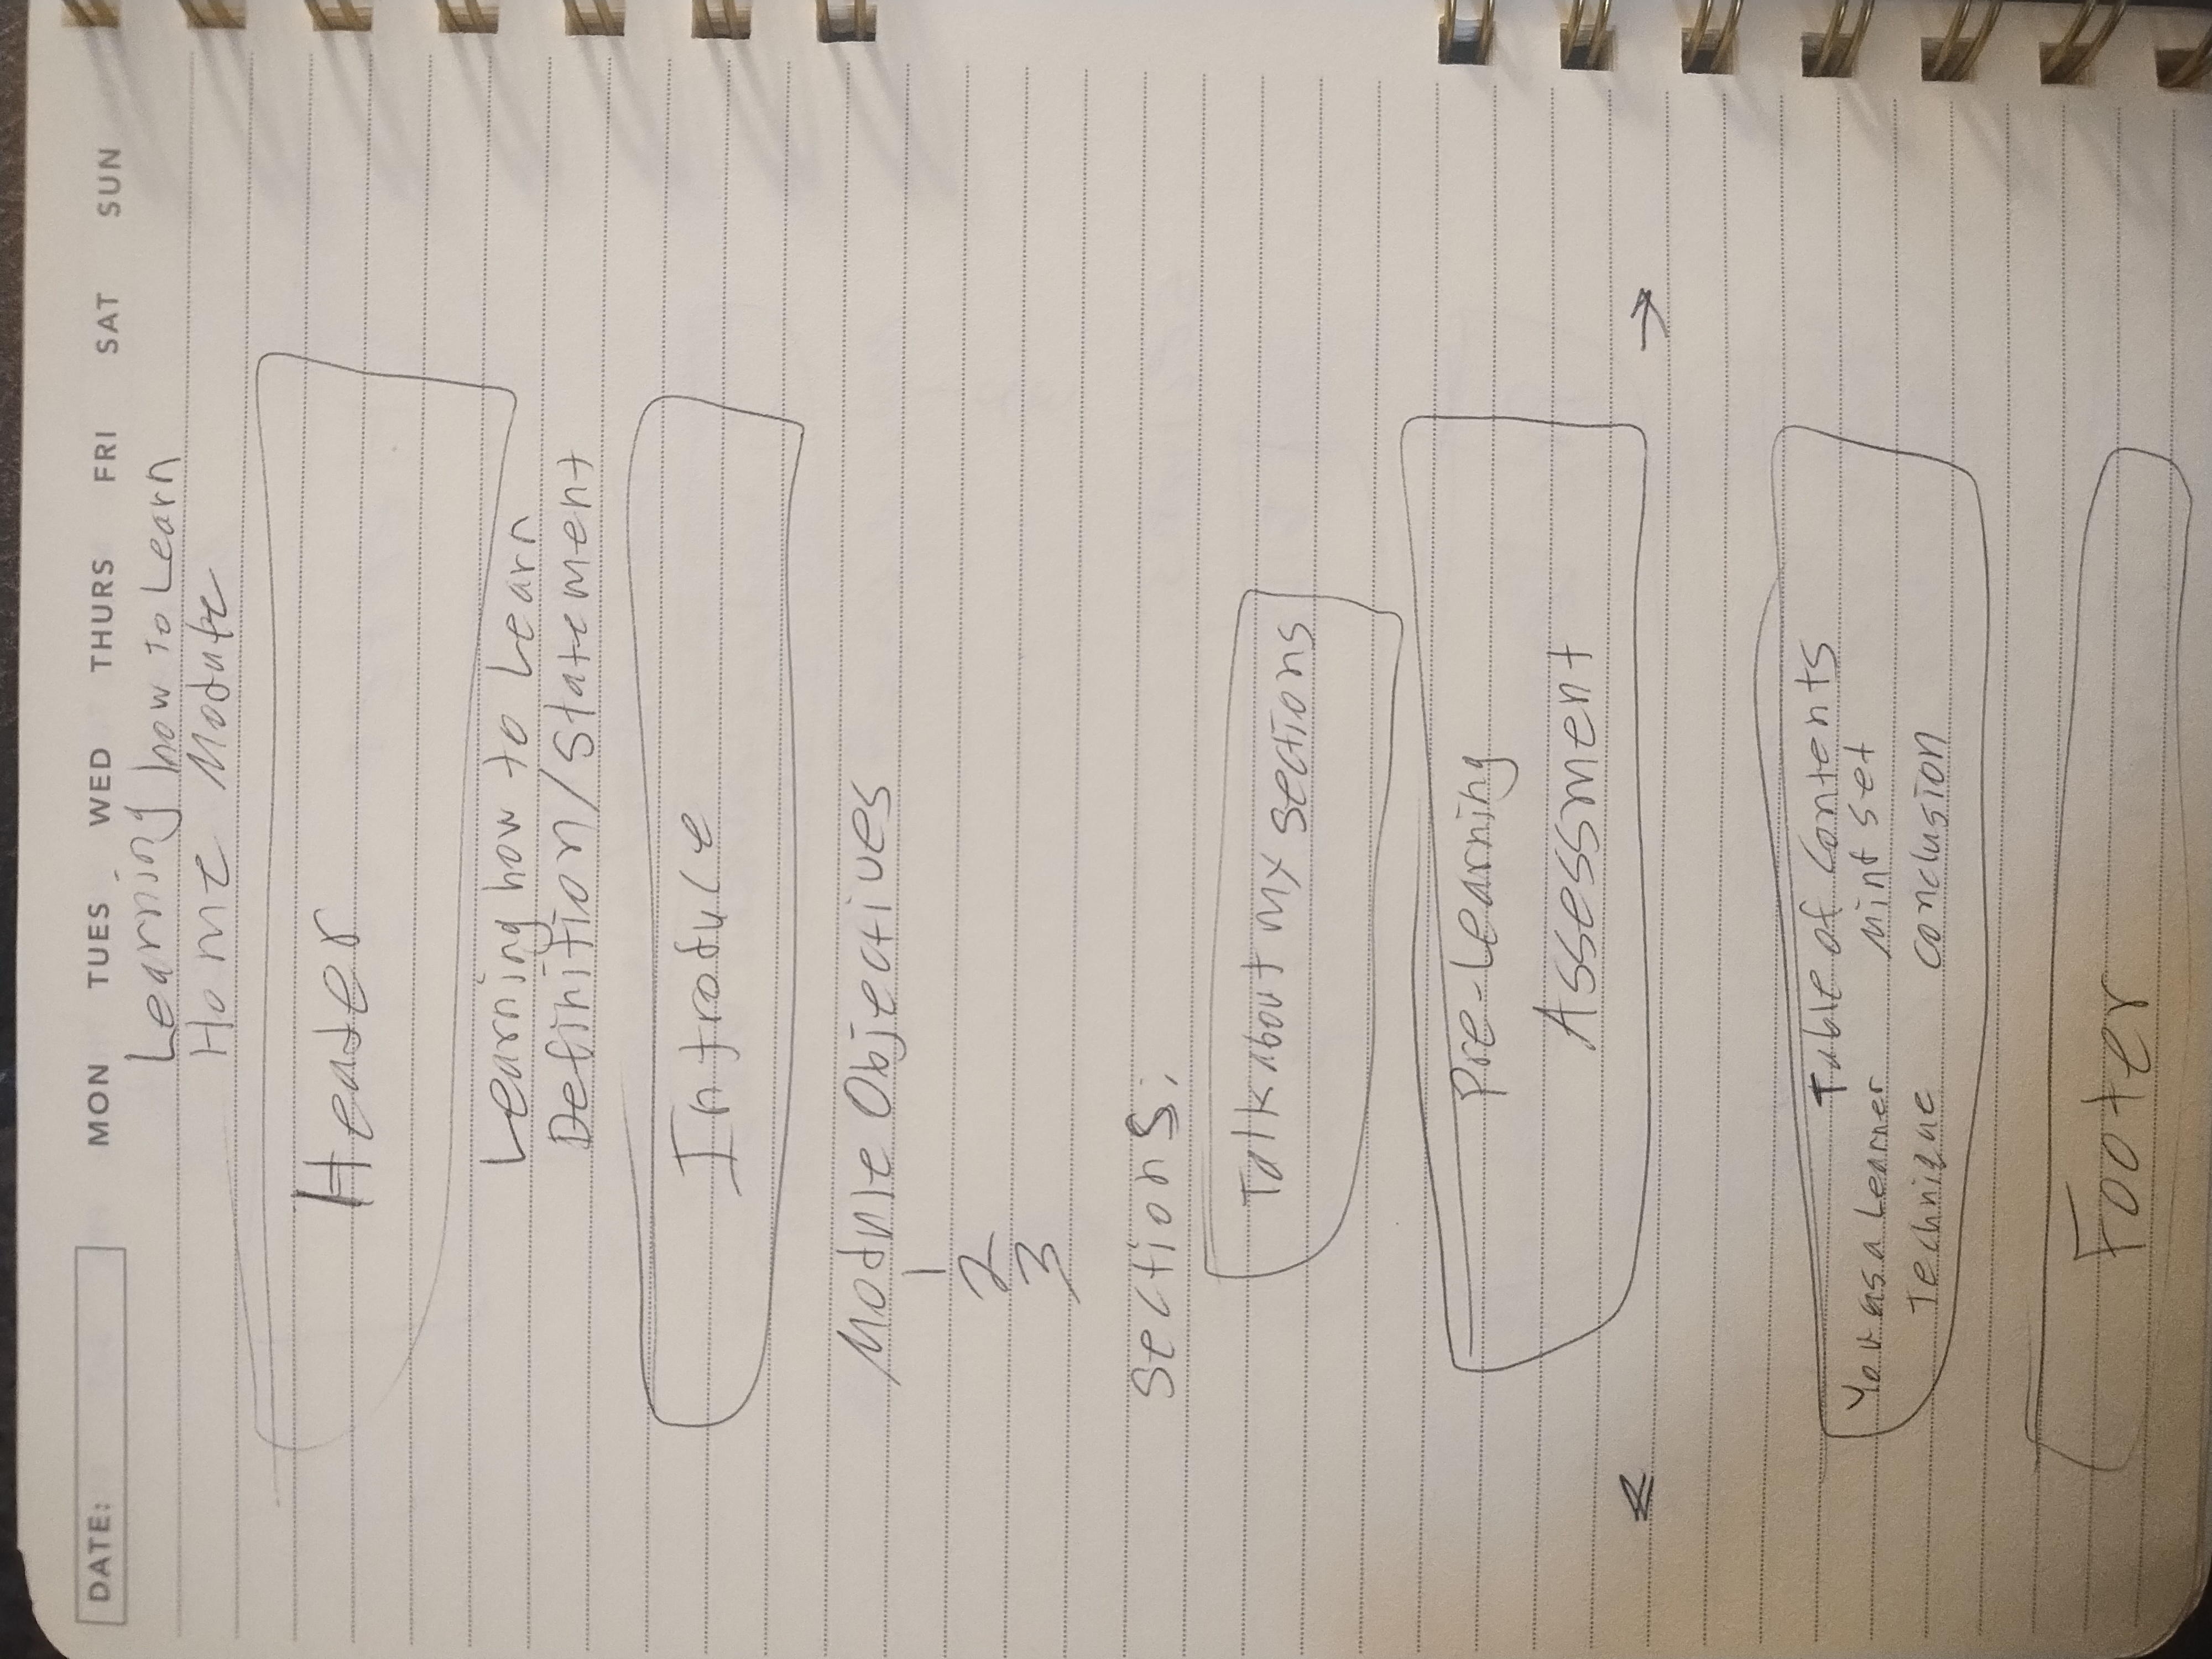 DATE: MON TUES WED THURS FRI SAT SUN
Learning how To Learn
Home Module
Header
Learning how to Learn
Definition/Statement
Introduce
Module Objectives
1
2
3
Sections:
Talk about my sections
Pre-Learning
Assessment
← →
Table of Contents
You as a Learner Mind set
Technique Conclusion
Footer